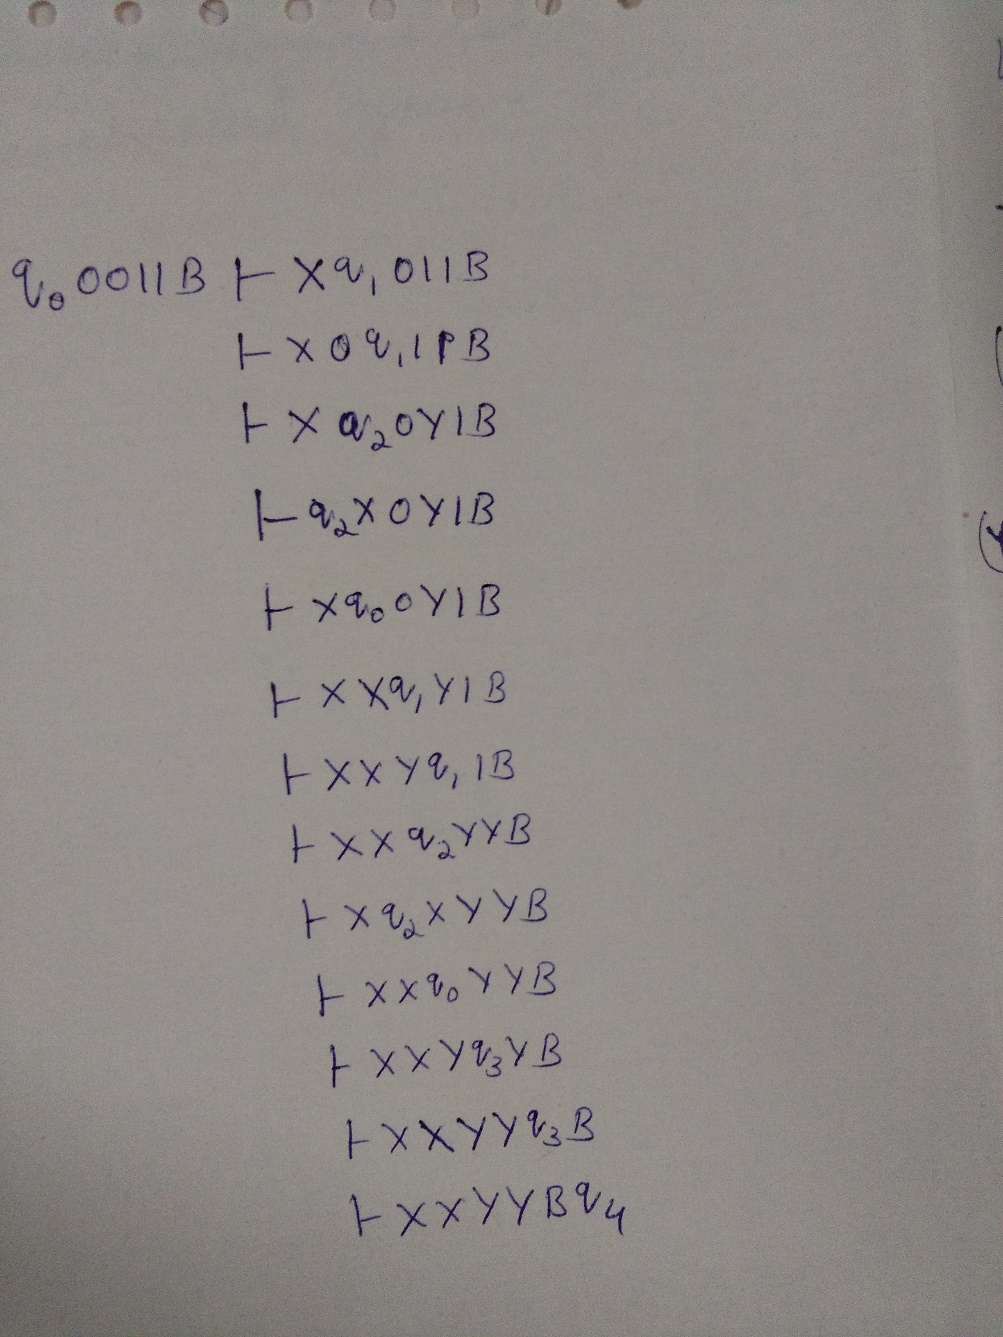 q₀0011B ⊢ Xq₁011B
⊢ X0q₁11B
⊢ Xq₂0Y1B
⊢ q₂X0Y1B
⊢ Xq₀0Y1B
⊢ XXq₁Y1B
⊢ XXYq₁1B
⊢ XXq₂YYB
⊢ Xq₂XYYB
⊢ XXq₀YYB
⊢ XXYq₃YB
⊢ XXYYq₃B
⊢ XXYYBq₄